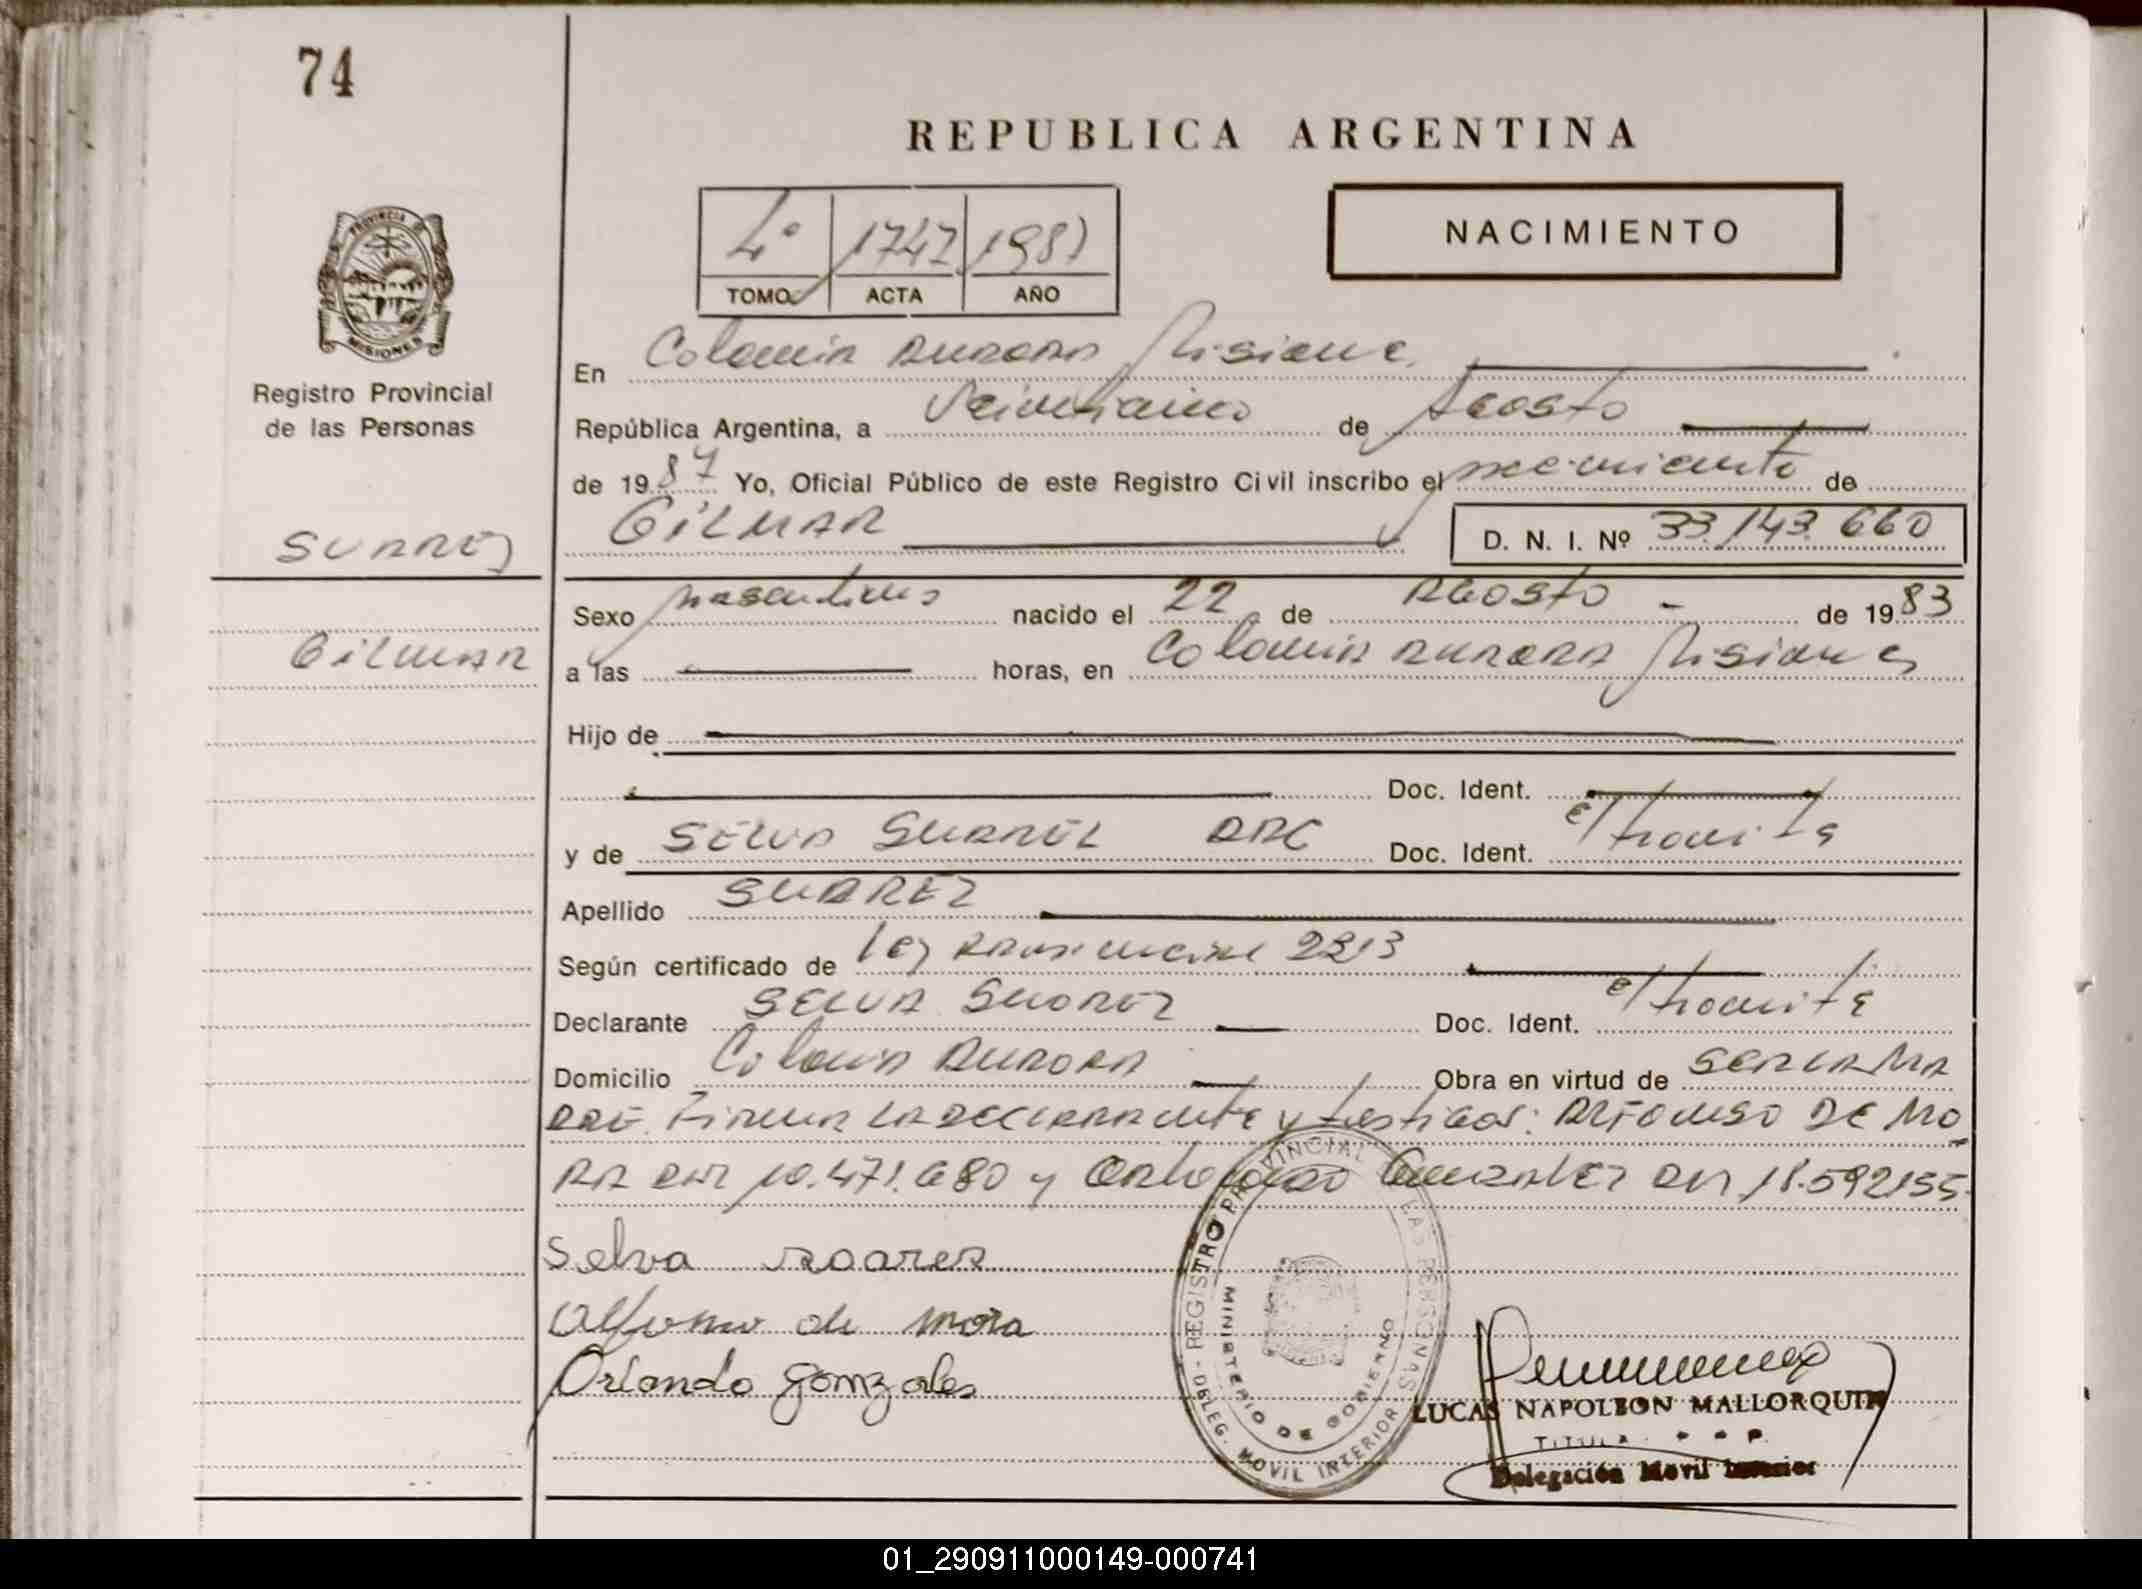 74
REPUBLICA ARGENTINA
4º 1747 1987
TOMO ACTA AÑO
NACIMIENTO
PROVINCIA D
MISIONES
Registro Provincial
de las Personas
En Colonia Aurora Misiones
República Argentina, a Veinticinco de Agosto
de 1987 Yo, Oficial Público de este Registro Civil inscribo el nacimiento de
GILMAR D. N. I. Nº 33.143.660
SUAREZ
GILMAR
Sexo masculino nacido el 22 de AGOSTO de 1983
a las horas, en Colonia Aurora Misiones
Hijo de
Doc. Ident.
y de SELVA SUAREZ ARG Doc. Ident. e/tramite
Apellido SUAREZ
Según certificado de ley provincial 2213
Declarante SELVA SUAREZ Doc. Ident. e/tramite
Domicilio Colonia Aurora Obra en virtud de SER LA MA
DRE. Firman la declarante y testigos: Alfonso DE MO
RA DNI 10.471.680 y Orlando Gonzalez DNI 18.592155
Selva soares
Alfonso de mora
Orlando gonzales
REGISTRO PROVINCIAL DE LAS PERSONAS - DELEG. MOVIL INTERIOR
MINISTERIO DE GOBIERNO
LUCAS NAPOLEON MALLORQUIN
Delegación Movil Interior
01_290911000149-000741